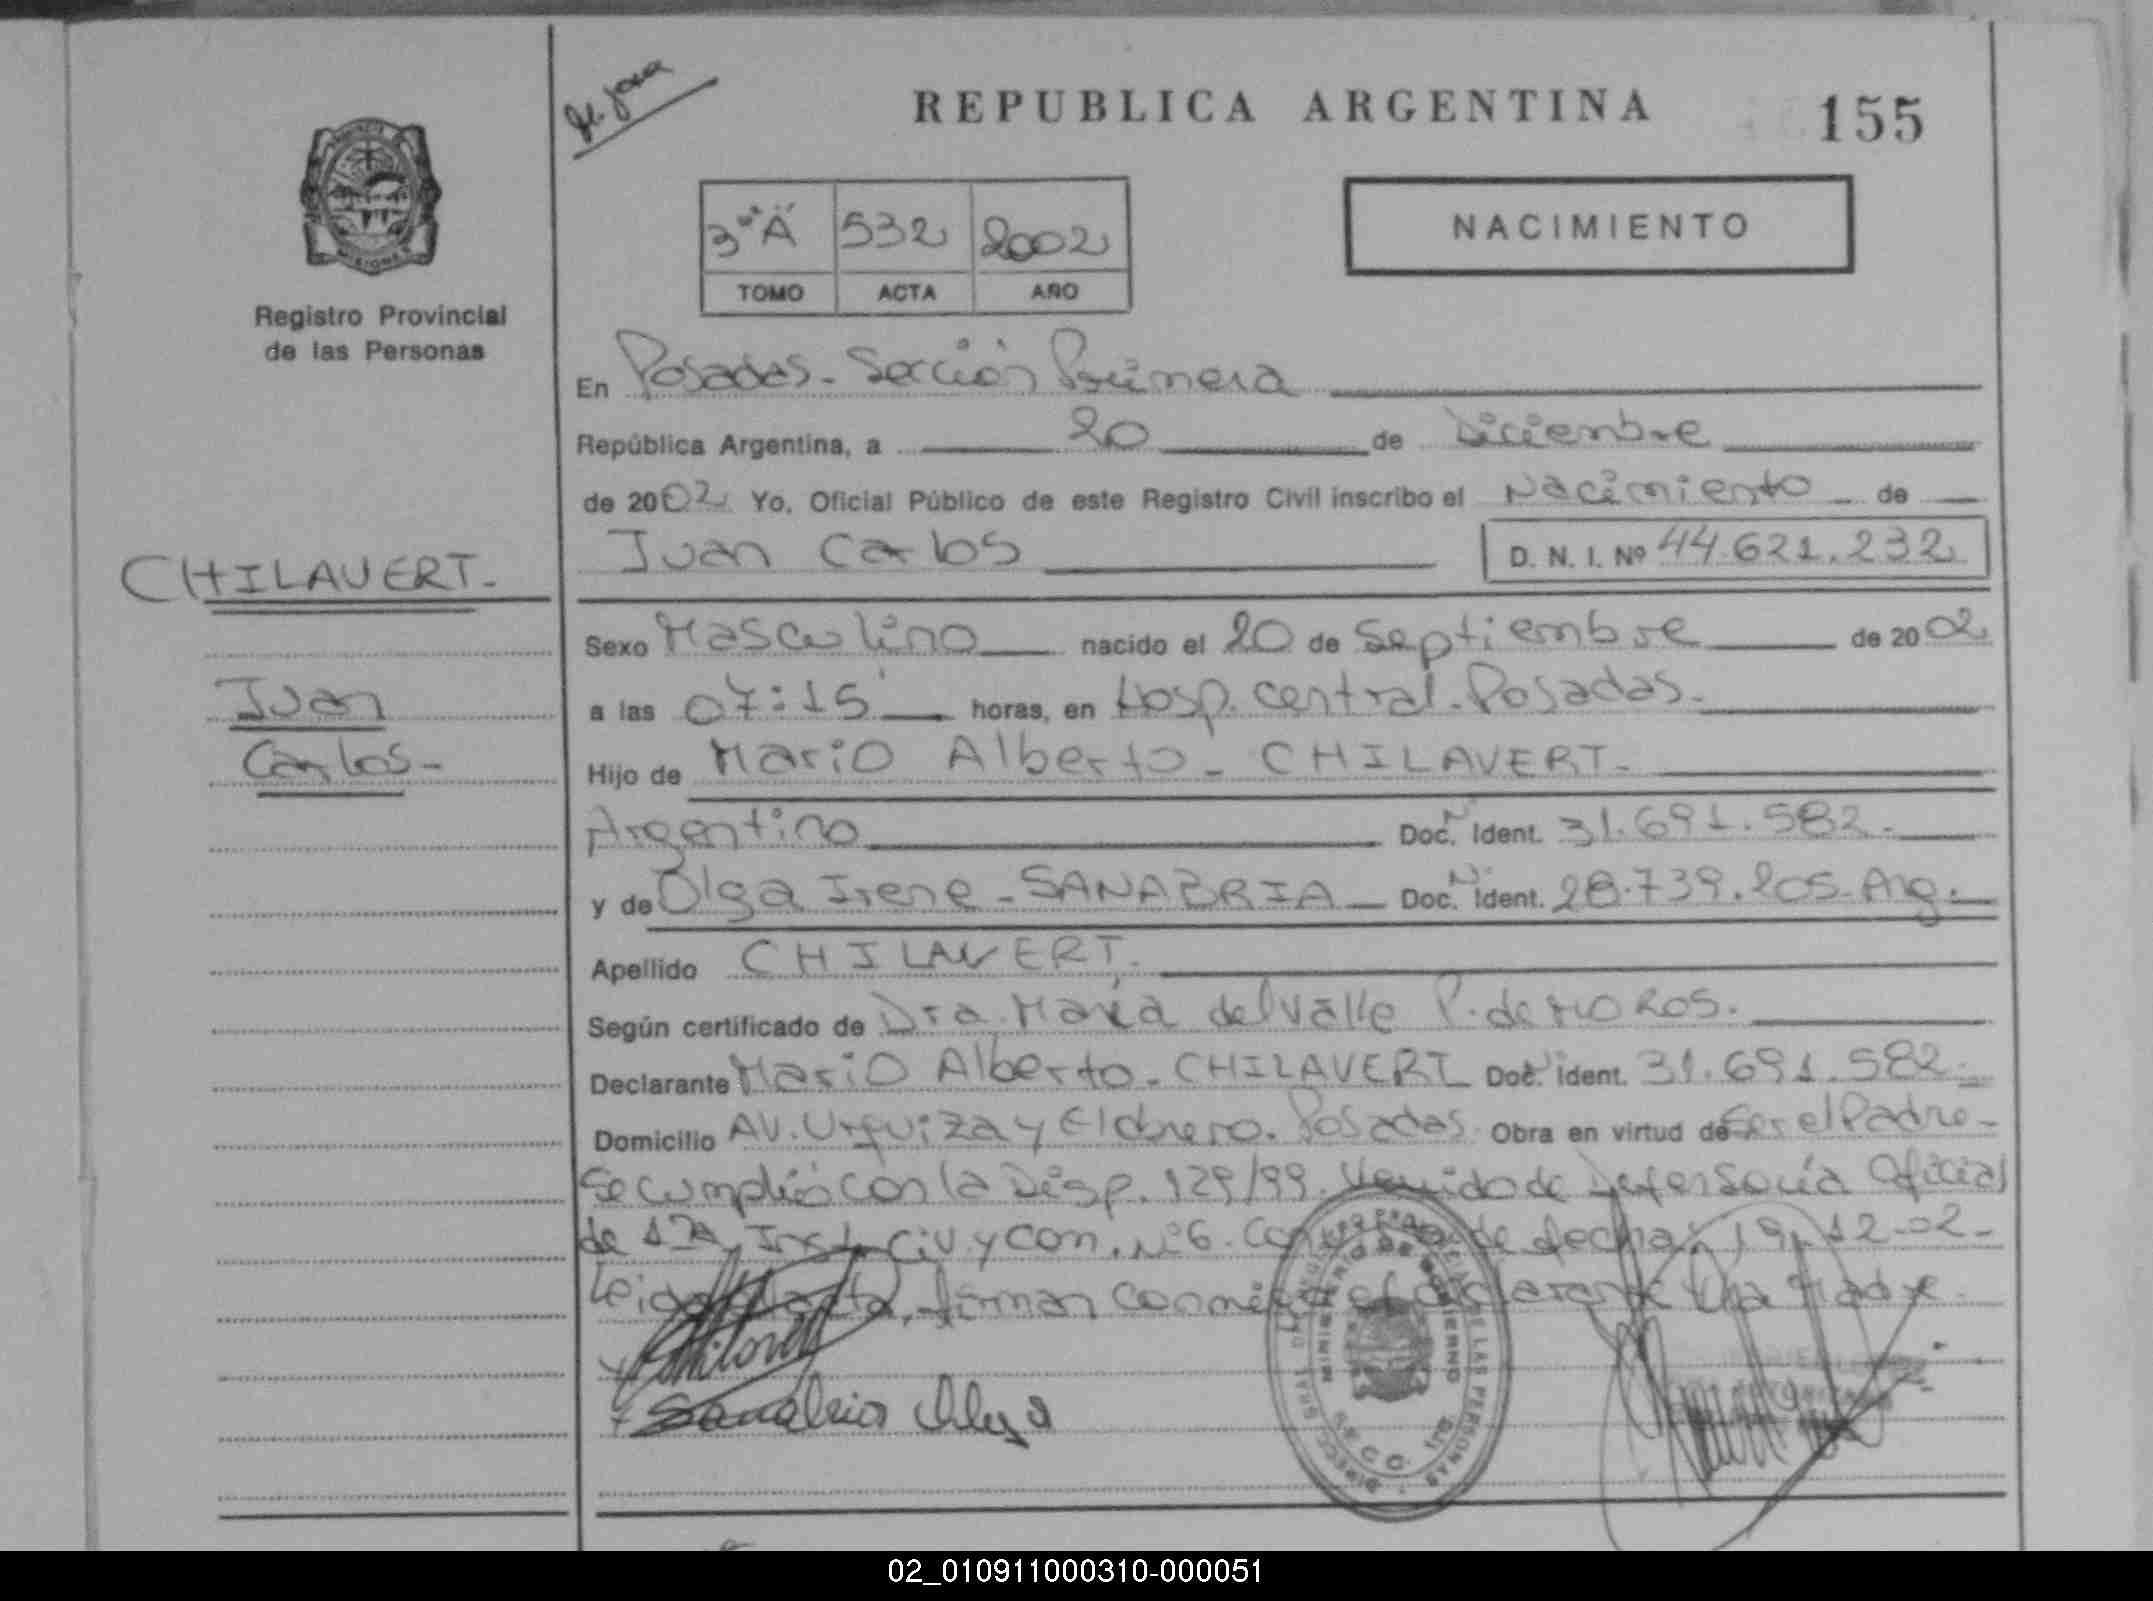 REPUBLICA ARGENTINA
155
NACIMIENTO
3º "A" 532 2002
TOMO ACTA AÑO
Registro Provincial
de las Personas
En Posadas - Sección Primera
República Argentina, a 20 de Diciembre
de 2002 Yo, Oficial Público de este Registro Civil inscribo el Nacimiento de
Juan Carlos D. N. I. Nº 44.621.232
CHILAVERT.-
Juan
Carlos-
Sexo Masculino nacido el 20 de Septiembre de 2002
a las 07:15' horas, en Hosp. Central. Posadas.
Hijo de Mario Alberto - CHILAVERT.-
Argentino Doc. Nº Ident. 31.691.582.-
y de Olga Irene - SANABRIA Doc. Nº Ident. 28.739.205. Arg.
Apellido CHILAVERT.
Según certificado de Dra. María del Valle P. de MOROS.
Declarante Mario Alberto - CHILAVERT Doc. Ident. 31.691.582.-
Domicilio AV. Urquiza y El obrero. Posadas Obra en virtud de Ser el Padre-
Se cumplió con la Disp. 129/99. Venido de Defensoría Oficial
de 1ra Inst. Civ. y Com. Nº 6. de fecha 19-12-02-
Leida el acta, firman conmigo el declarante y la Madre.
Chilavert
Sanabria Olga
MINISTERIO DE GOBIERNO
SECC. 1ra
02_010911000310-000051